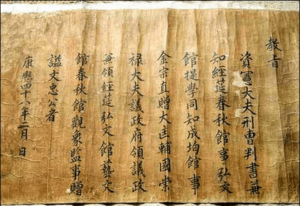 敎旨
資憲大夫刑曹判書兼
知經筵春秋館事弘文
館提學同知成均館事
金宗直贈大匡輔國崇
祿大夫議政府領議政
兼領經筵弘文館藝文
館春秋館觀象監事贈
諡文忠公者
康熙四十八年二月 日